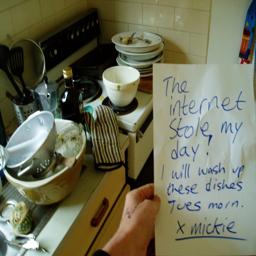 The
internet
Stole my
day!
I will wash up
these dishes
Tues morn.
x mickie